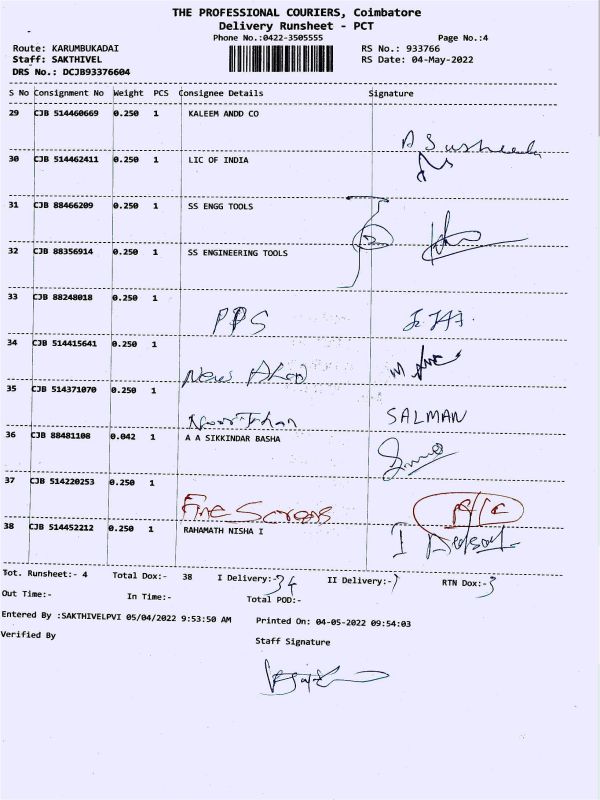 THE PROFESSIONAL COURIERS, Coimbatore
Delivery Runsheet - PCT
Phone No.:0422-3505555 Page No.:4
Route: KARUMBUKADAI RS No.: 933766
Staff: SAKTHIVEL RS Date: 04-May-2022
DRS No.: DCJB93376604
S No Consignment No Weight PCS Consignee Details Signature
29 CJB 514460669 0.250 1 KALEEM ANDD CO
30 CJB 514462411 0.250 1 LIC OF INDIA
31 CJB 88466209 0.250 1 SS ENGG TOOLS
32 CJB 88356914 0.250 1 SS ENGINEERING TOOLS
33 CJB 88248018 0.250 1
PPS
34 CJB 514415641 0.250 1
35 CJB 514371070 0.250 1
SALMAN
36 CJB 88481108 0.042 1 A A SIKKINDAR BASHA
37 CJB 514220253 0.250 1
Fine Screens
38 CJB 514452212 0.250 1 RAHAMATH NISHA I
Tot. Runsheet:- 4 Total Dox:- 38 I Delivery:- 34 II Delivery:- 1 RTN Dox:- 3
Out Time:- In Time:- Total POD:-
Entered By :SAKTHIVELPVI 05/04/2022 9:53:50 AM Printed On: 04-05-2022 09:54:03
Verified By Staff Signature